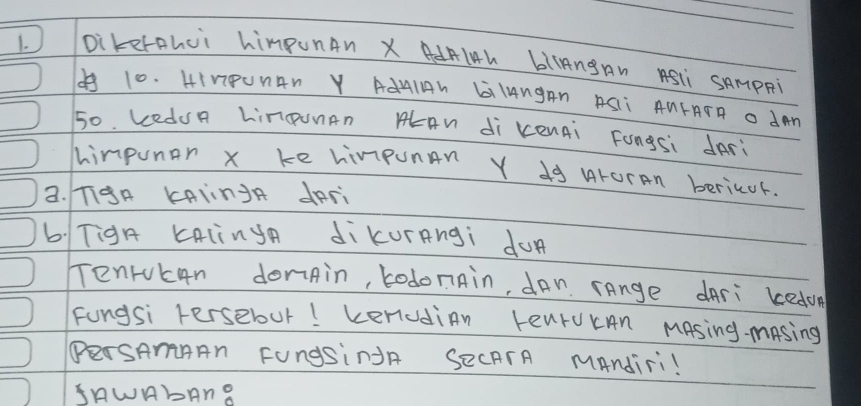 1. Diketahui himpunan X adalah bilangan asli sampai
dg 10. Himpunan Y adalah bilangan asli antara 0 dan
50. kedua himpunan akan di kenai fungsi dari
himpunan X ke himpunan Y dg aturan berikut.
a. Tiga kalinya dari
b. Tiga kalinya dikurangi dua
Tentukan domain, kodomain, dan range dari kedua
fungsi tersebut! kemudian tentukan masing-masing
persamaan fungsinya secara mandiri!
Jawaban: